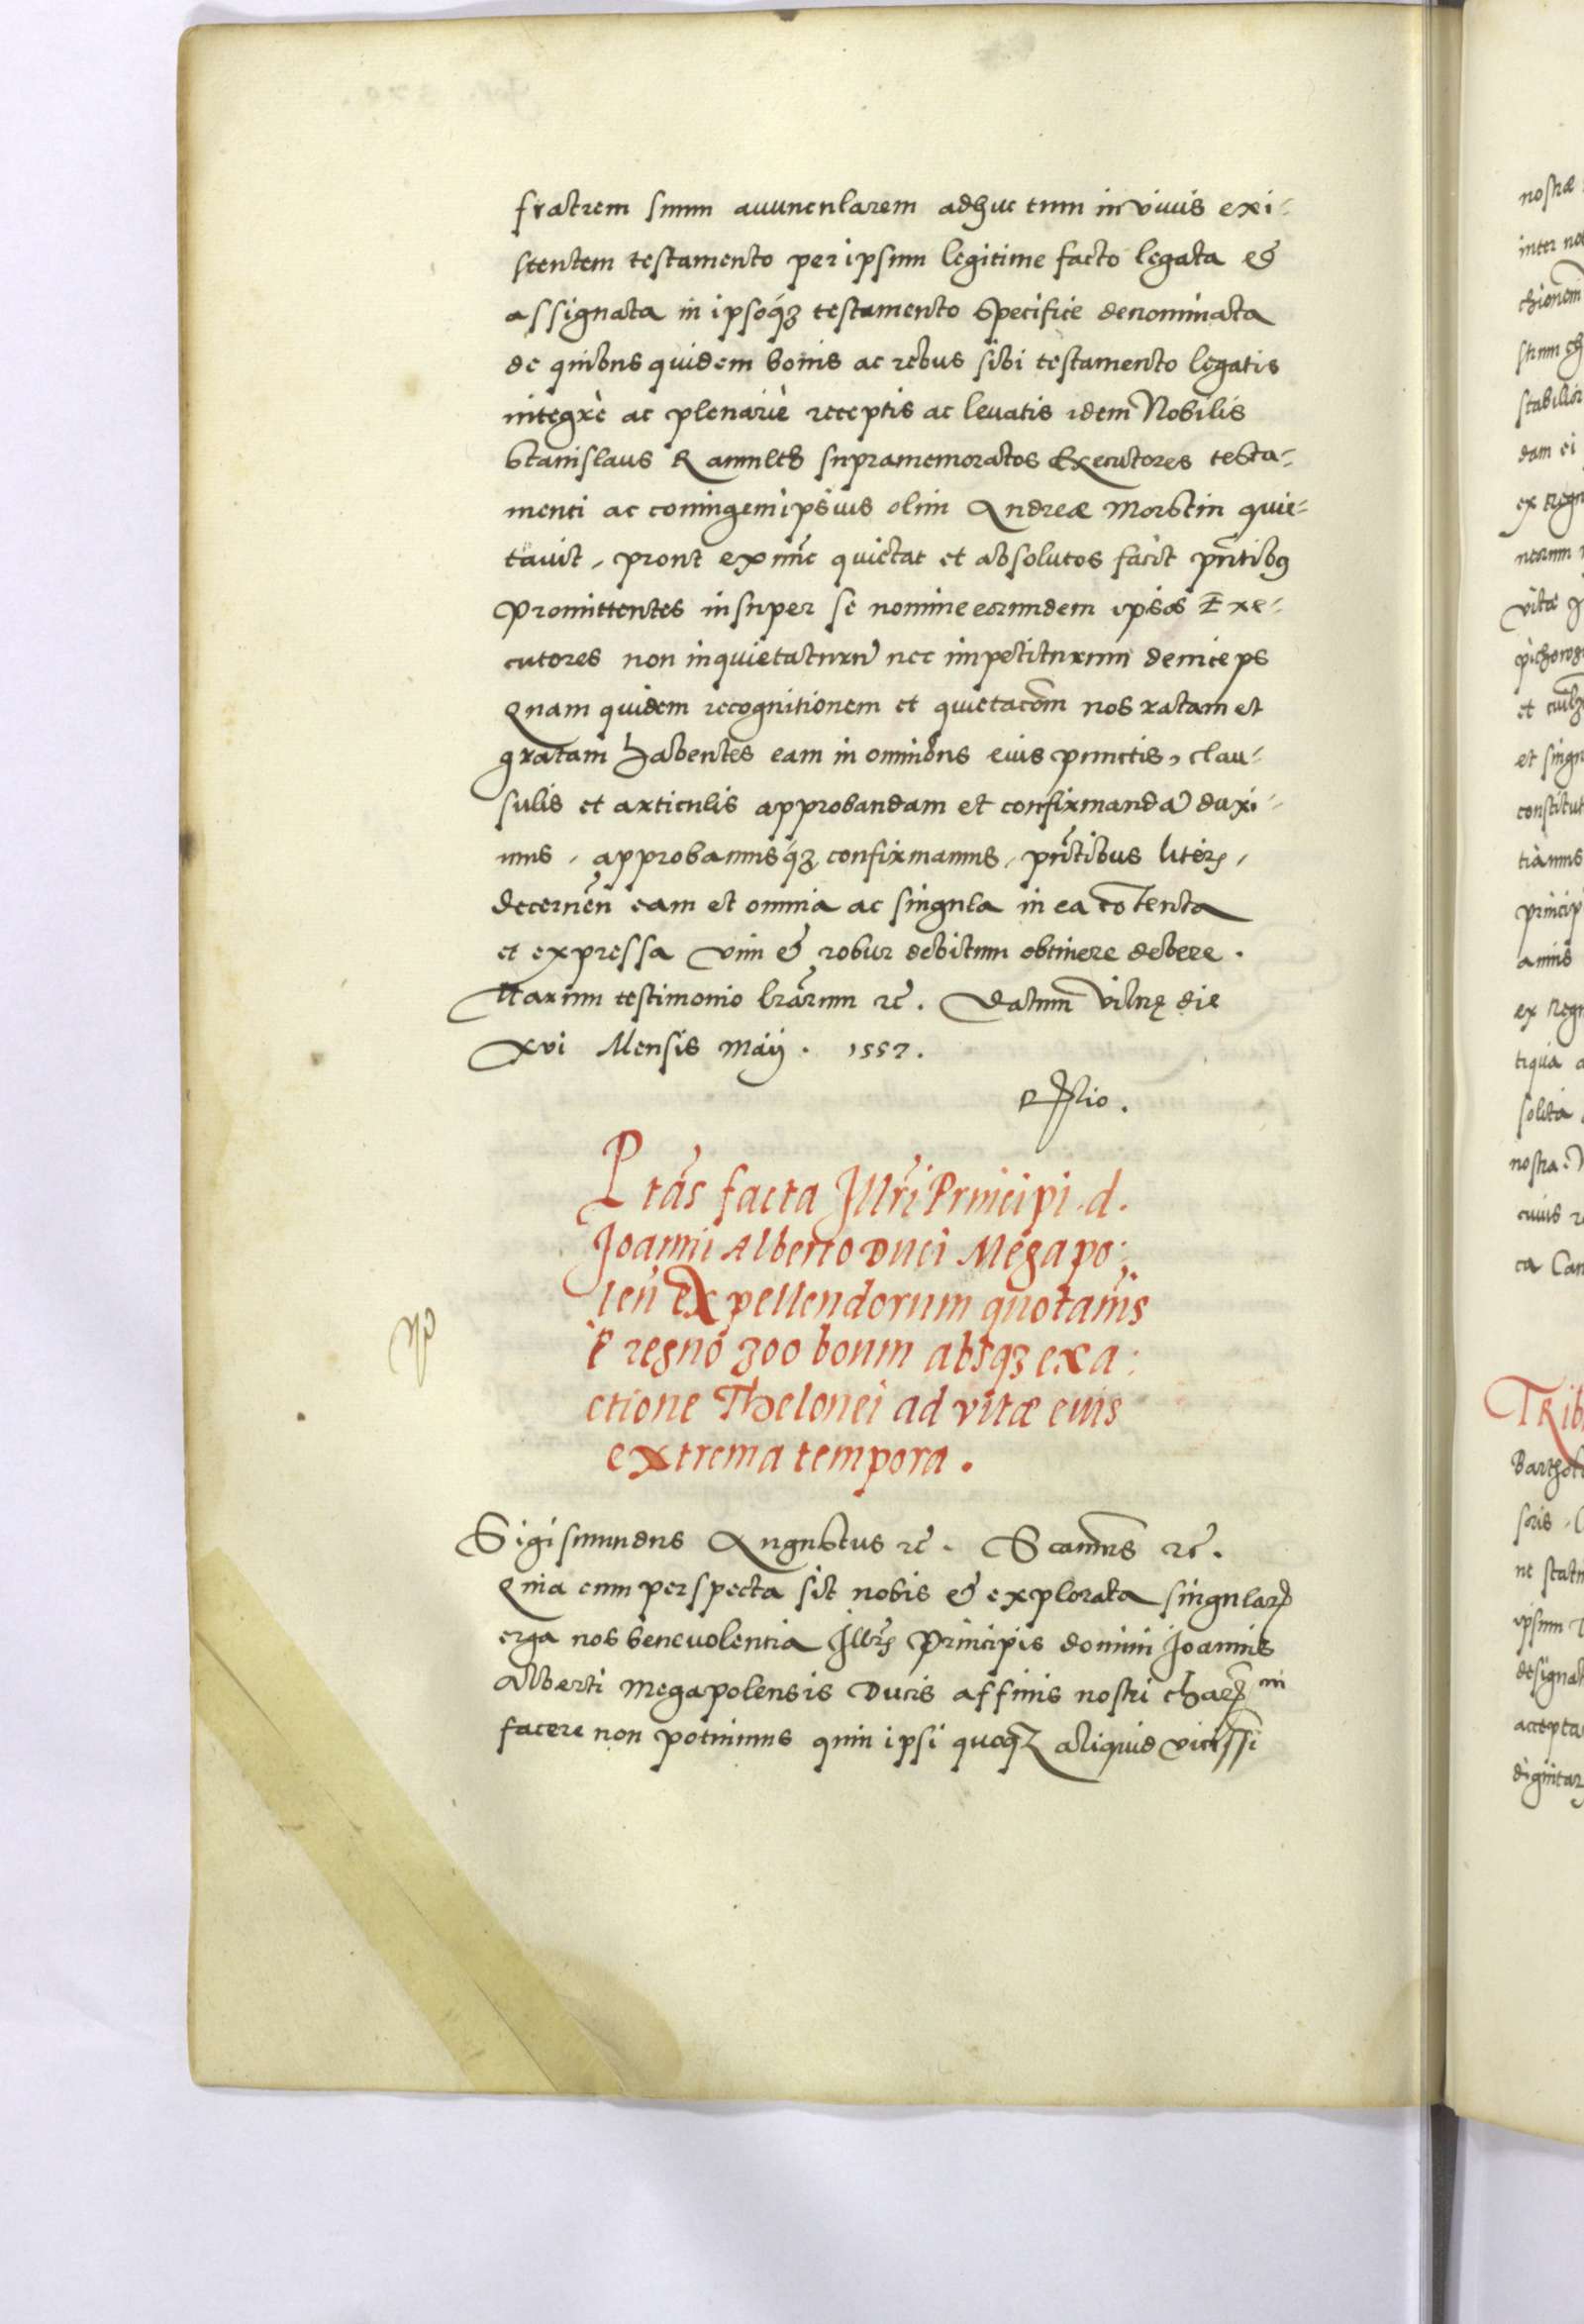 fratrem suum auuncularem adhuc tum in viuis exi-
stentem testamento per ipsum legitime facto legata et
assignata in ipsoq́ꝫ testamento specifice denominata
de quibus quidem bonis ac rebus sibi testamento legatis
integrè ac plenariè receptis ac leuatis idem Nobilis
Stanislaus supramemoratos Executores testa-
menti ac coniugem ipsius olim Andreæ Morstin quie-
tauit, prout ex nūc quietat et absolutos facit pn̄tibꝫ
Promittentes insuper se nomine eorundem ipsos Exe-
cutores non inquietaturū nec impetiturum deinceps
Quam quidem recognitionem et quietacōem nos ratam et
gratam habentes eam in omnibus eius punctis, clau-
sulis et articulis approbandam et confirmandā duxi-
mus, approbamusq́ꝫ confirmamus, pn̄tibus literis,
decernen̄ eam et omnia ac singula in ea cōtenta
et expressa vim et robur debitum obtinere debere.
Harum testimonio lrārum ꝛc̄. Datum Vilnę die
xvi Mensis Maij. 1557.
Ptās facta Illr̄i Principi .d.
Joanni Alberto Duci Megapo-
len̄ Expellendorum quotānis
è regno 300 boum absqꝫ exa-
ctione Thelonei ad vitæ eius
extrema tempora.
Sigismundus Augustus ꝛc̄. Significamus ꝛc̄.
Quia cum perspecta sit nobis et explorata singularis
erga nos beneuolentia Illr̄is Principis domini Joannis
Alberti Megapolensis Ducis affinis nostri charissmi
facere non potuimus quin ipsi quoqꝫ aliquid vicissī